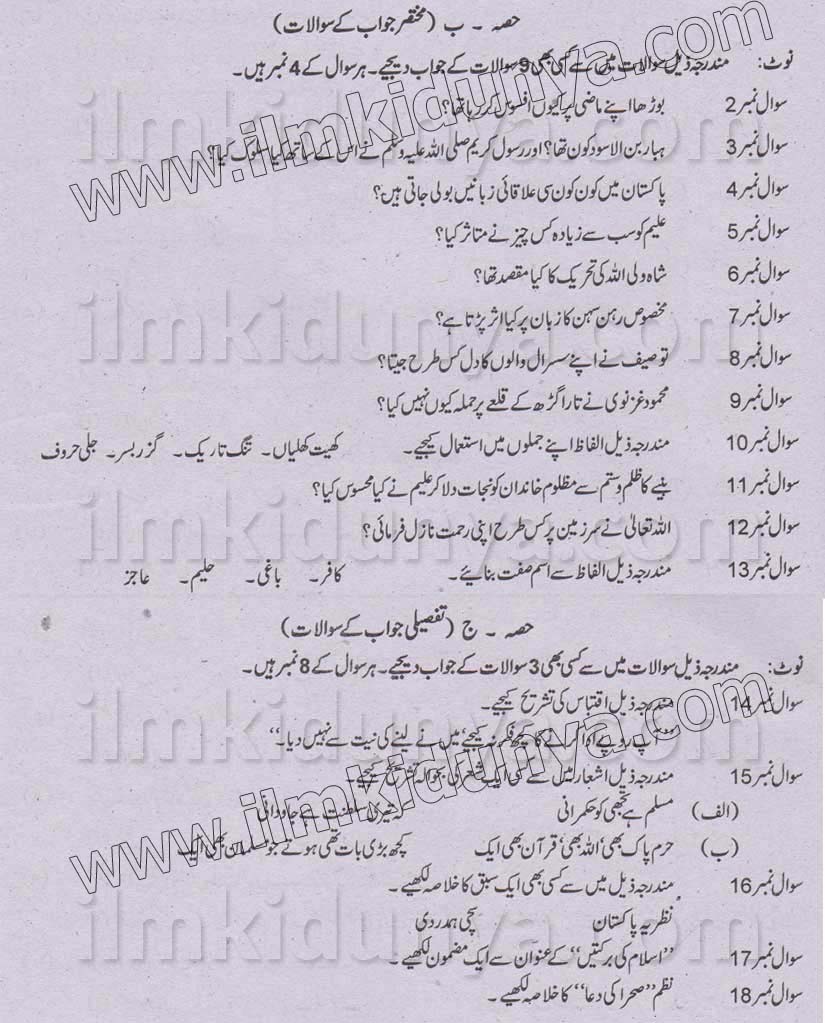 حصہ ۔ ب (مختصر جواب کے سوالات)
نوٹ: مندرجہ ذیل سوالات میں سے کسی بھی 9 سوالات کے جواب دیجیے۔ ہر سوال کے 4 نمبر ہیں۔
سوال نمبر 2 بوڑھا اپنے ماضی پر کیوں افسوس کر رہا تھا؟
سوال نمبر 3 ہبار بن الاسود کون تھا؟ اور رسول کریم صلی اللہ علیہ وسلم نے اس کے ساتھ کیا سلوک کیا؟
سوال نمبر 4 پاکستان میں کون کون سی علاقائی زبانیں بولی جاتی ہیں؟
سوال نمبر 5 علیم کو سب سے زیادہ کس چیز نے متاثر کیا؟
سوال نمبر 6 شاہ ولی اللہ کی تحریک کا کیا مقصد تھا؟
سوال نمبر 7 مخصوص رہن سہن کا زبان پر کیا اثر پڑتا ہے؟
سوال نمبر 8 توصیف نے اپنے سسرال والوں کا دل کس طرح جیتا؟
سوال نمبر 9 محمود غزنوی نے تارا گڑھ کے قلعے پر حملہ کیوں نہیں کیا؟
سوال نمبر 10 مندرجہ ذیل الفاظ اپنے جملوں میں استعمال کیجیے۔ کھیت کھلیاں۔ تنگ تاریک۔ گزر بسر۔ جلی حروف
سوال نمبر 11 بنیے کا ظلم و ستم سے مظلوم خاندان کو نجات دلا کر علیم نے کیا محسوس کیا؟
سوال نمبر 12 اللہ تعالیٰ نے سرزمین پر کس طرح اپنی رحمت نازل فرمائی؟
سوال نمبر 13 مندرجہ ذیل الفاظ سے اسم صفت بنائیے۔ کافر۔ باغی۔ حلیم۔ عاجز
حصہ ۔ ج (تفصیلی جواب کے سوالات)
نوٹ: مندرجہ ذیل سوالات میں سے کسی بھی 3 سوالات کے جواب دیجیے۔ ہر سوال کے 8 نمبر ہیں۔
سوال نمبر 14 مندرجہ ذیل اقتباس کی تشریح کیجیے۔
"آپ روپے ادا کرنے کا کچھ فکر نہ کیجیے میں نے لینے کی نیت سے نہیں دیا۔"
سوال نمبر 15 مندرجہ ذیل اشعار میں سے کسی ایک شعر کی بحوالہ تشریح کیجیے۔
(الف) مسلم ہے تجھی کو حکمرانی کہ تیری سلطنت ہے جاودانی
(ب) حرم پاک بھی، اللہ بھی، قرآن بھی ایک کچھ بڑی بات تھی ہوتے جو مسلمان بھی ایک
سوال نمبر 16 مندرجہ ذیل میں سے کسی بھی ایک سبق کا خلاصہ لکھیے۔
نظریہ پاکستان سچی ہمدردی
سوال نمبر 17 "اسلام کی برکتیں" کے عنوان سے ایک مضمون لکھیے۔
سوال نمبر 18 نظم "صحرا کی دعا" کا خلاصہ لکھیے۔
www.ilmkidunya.com
www.ilmkidunya.com
ilmkidunya.com
ilmkidunya.com
ilmkidunya.com
ilmkidunya.com
ilmkidunya.com